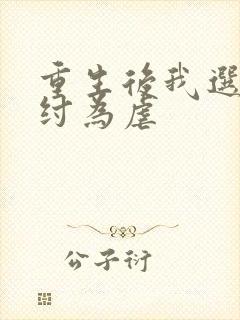 重生後我選
紂為虐
公子衍